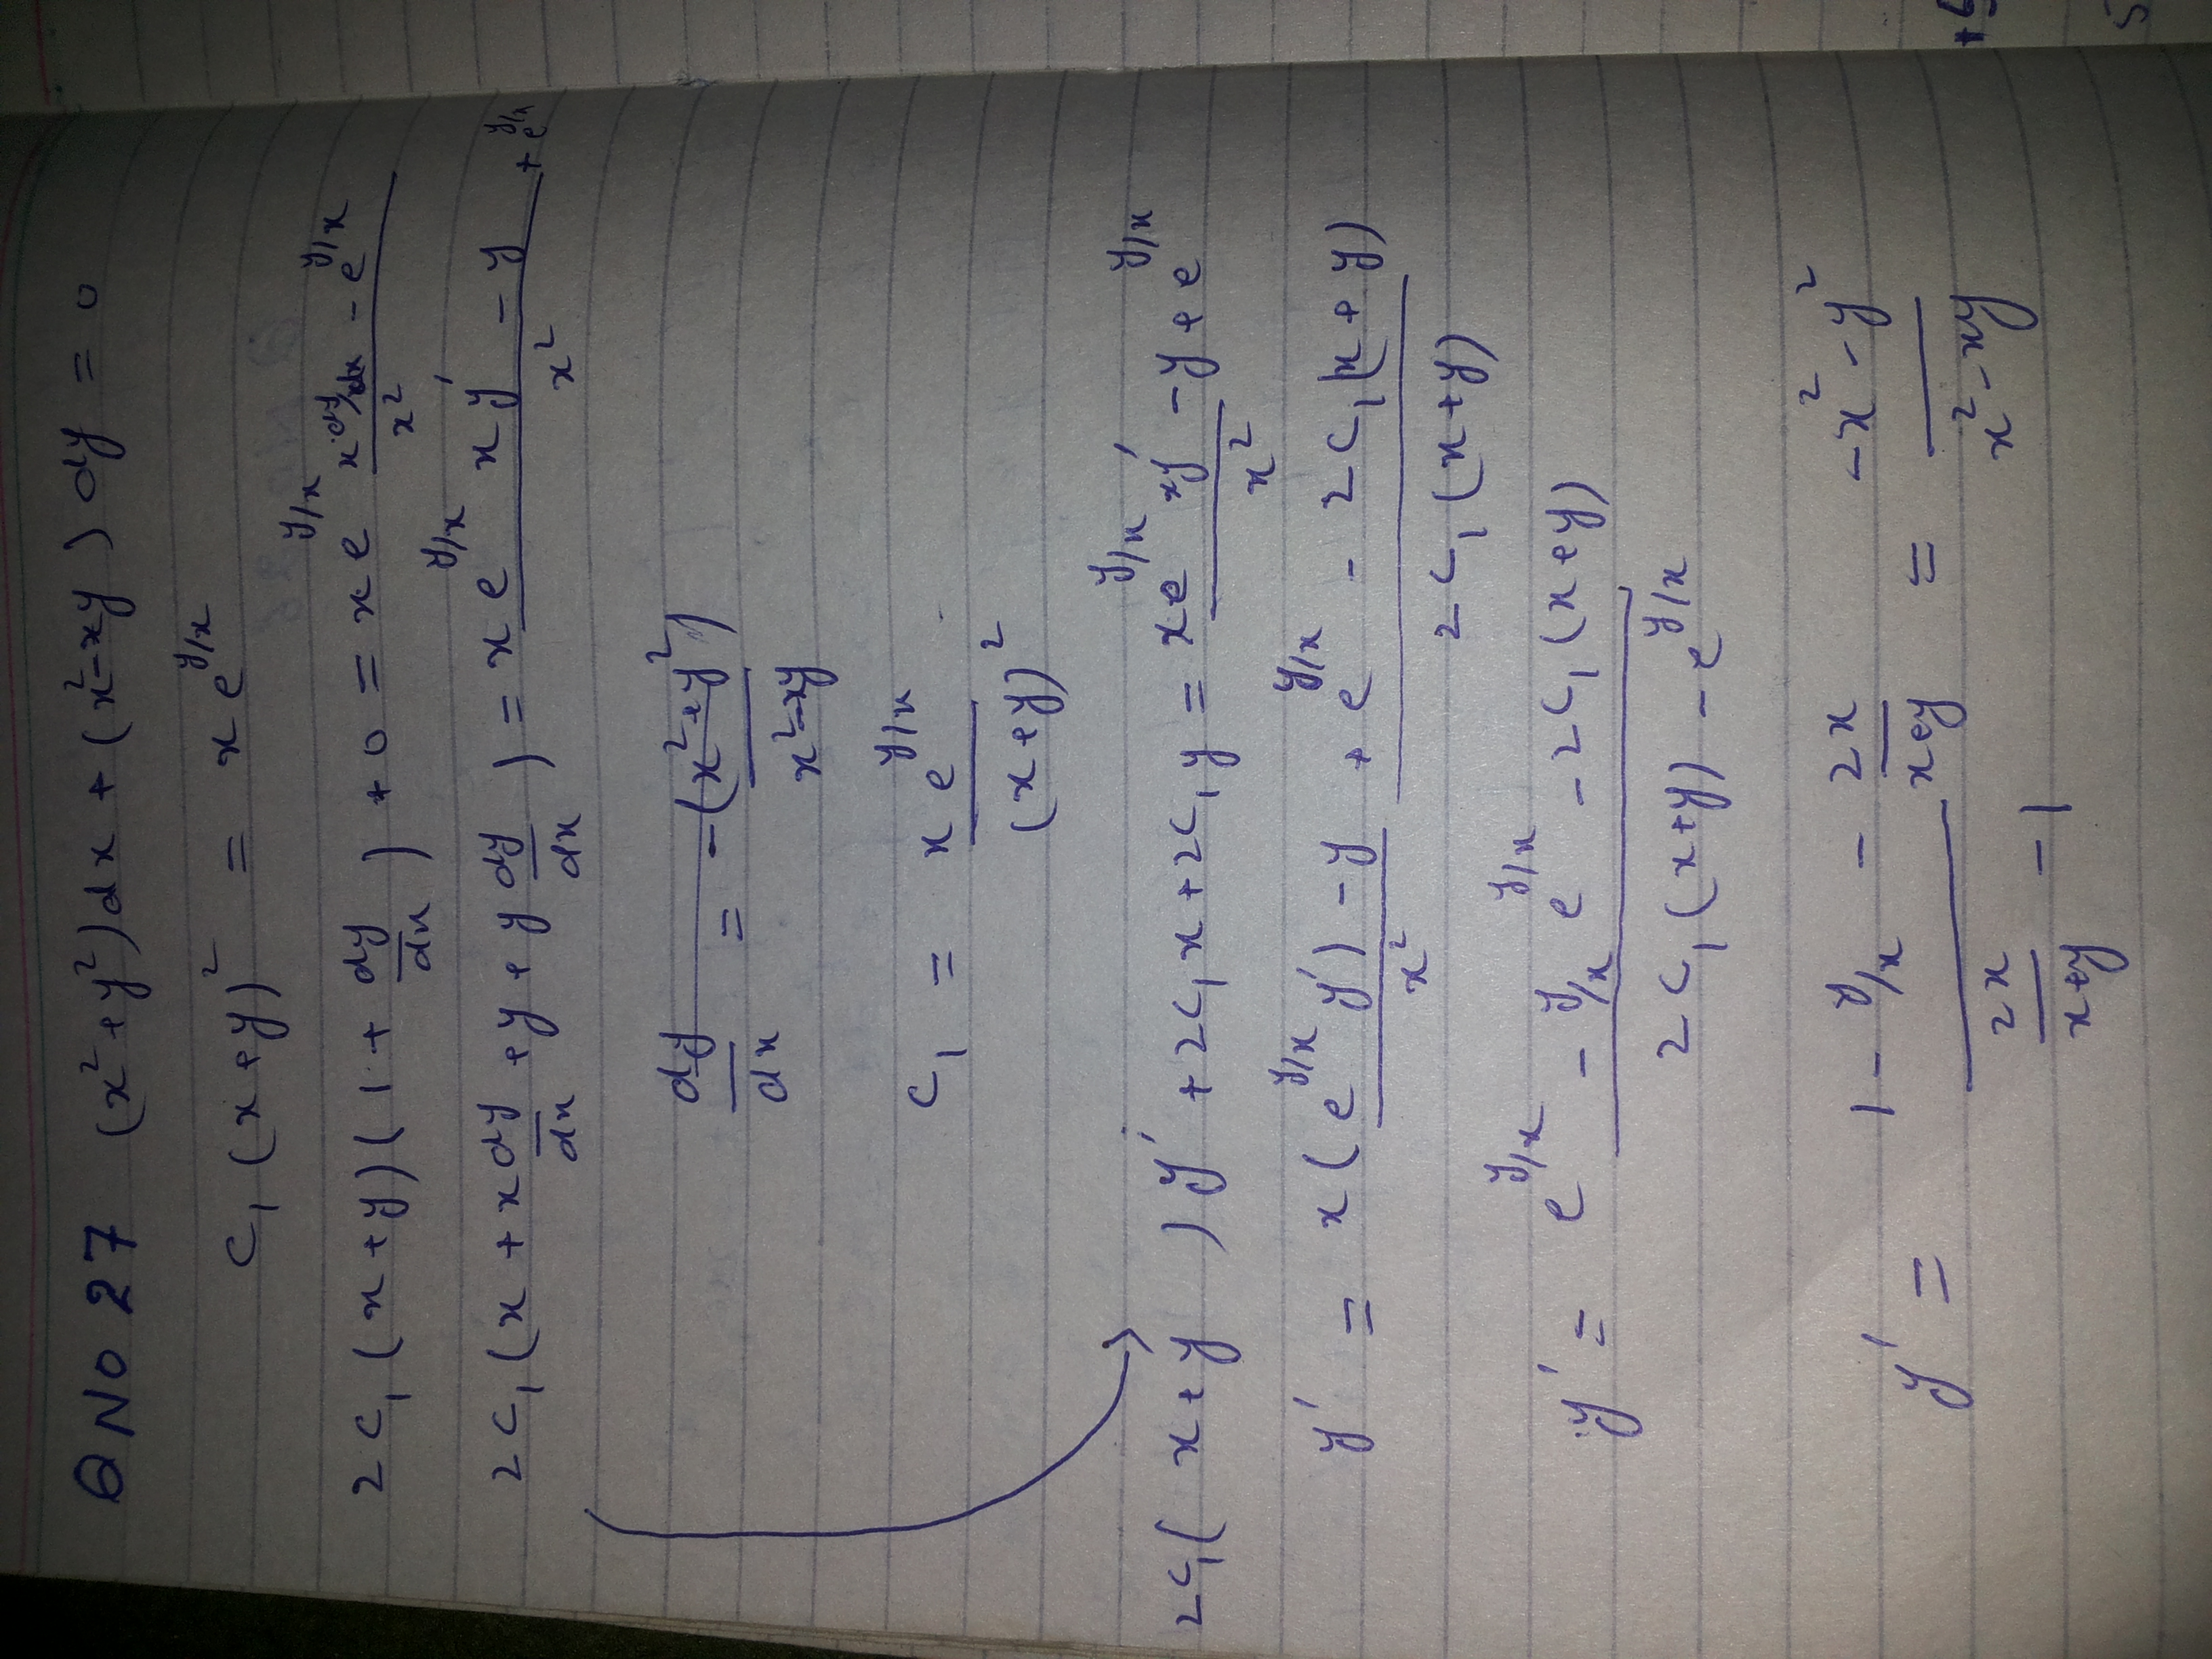 Q NO 27 (x²+y²)dx + (x²-xy) dy = 0
c₁ (x+y)² = x e^{y/x}
2c₁ (x+y)(1 + dy/dx) + 0 = x e^{y/x} (x dy/dx - e^{y/x})/x²
2c₁(x + x dy/dx + y + y dy/dx) = (x e^{y/x} xy' - y)/x² + e^{y/x}
dy/dx = -(x²+y²)/(x²-xy)
c₁ = x e^{y/x}/(x+y)²
2c₁( x+y ) y' + 2c₁x + 2c₁y = (x e^{y/x} xy')/x² - y + e^{y/x}
y' = x (e^{y/x} y') - y / x² + e^{y/x} - 2c₁(x+y) / 2c₁(x+y)
y' = (e^{y/x} - y/x e^{y/x} - 2c₁(x+y)) / (2c₁(x+y) - e^{y/x})
y' = (1 - y/x - 2x/(x+y)) / (2x/(x+y) - 1) = (-x²-y²)/(x²-xy)